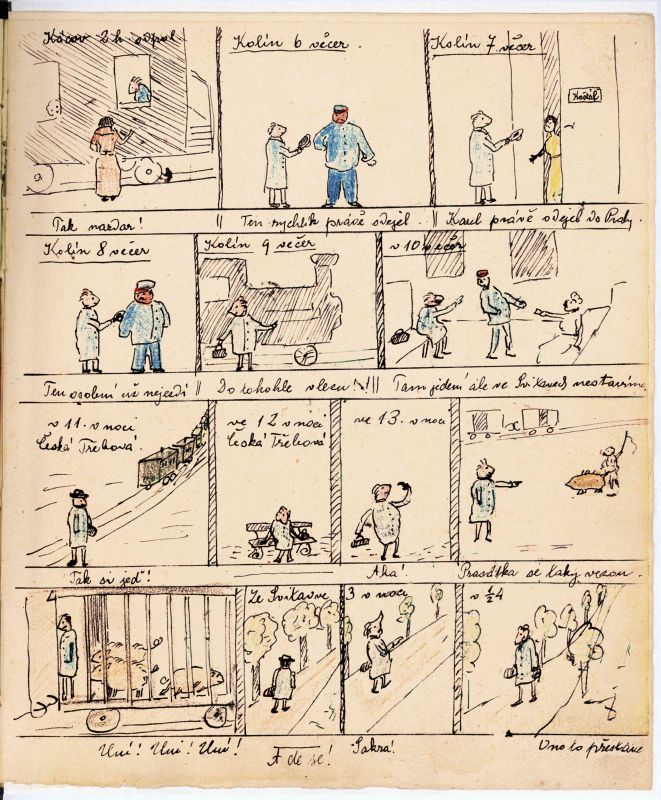 Kácov 2 h odpol
Kolín 6 večer.
Kolín 7 večer
Tak nazdar!
Ten rychlík právě odejel.
právě odejel do Prahy.
Kolín 8 večer
Kolín 9 večer
v 10 večer
Ten osobní už nejezdí
Do tohohle vlezu!
Tam jedeni ále ve Svitavech nestavíme
v 11. v noci
Česká Třebová.
ve 12 v noci
Česká Třebová
ve 13. v noci
Tak si jeď!
Aha!
Prasátka se taky vezou.
4
Ze Svitavne
3 v noci
v ½4
Uní! Uní! Uní!
A de se!
Sakra!
Vono to přestane